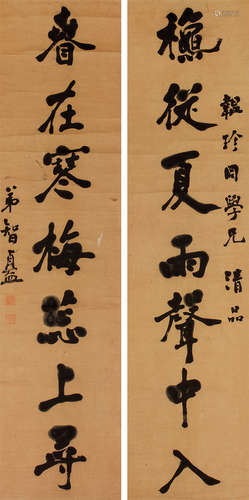 韞珍同學兄 清品
穐從夏雨聲中入
春在寒梅蕊上尋
弟智貞益